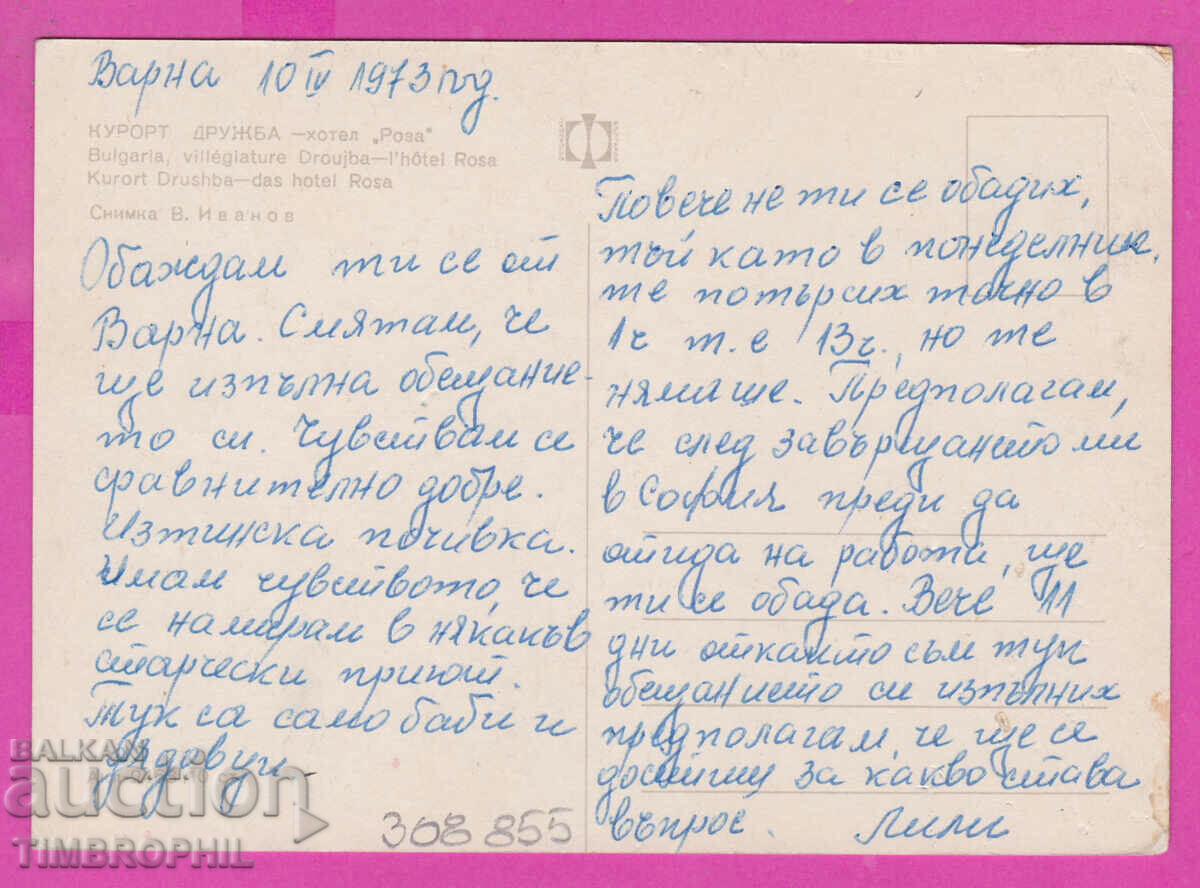 Варна 10 IV 1973 год.
КУРОРТ ДРУЖБА — хотел „Роза"
Bulgaria, villégiature Droujba—l'hôtel Rosa
Kurort Drushba—das hotel Rosa
Снимка В. Иванов
Обаждам ти се от
Варна. Смятам, че
ще изпълна обещание-
то си. Чувствам се
сравнително добре.
Изтинска почивка.
Имам чувството, че
се намирам в някакъв
старчески приют.
Тук са само баби и
вдовци.
Повече не ти се обадих,
тъй като в понеделник
те потърсих точно в
1ч т.е 13ч., но те
нямаше. Предполагам,
че след завърщането ми
в София преди да
отида на работа, ще
ти се обада. Вече 11
дни откакто съм тук
обещанието си изпълних
предполагам, че ще се
досетиш за какво става
въпрос. Лили
308 855
BALKAN
auction
TIMBROPHIL